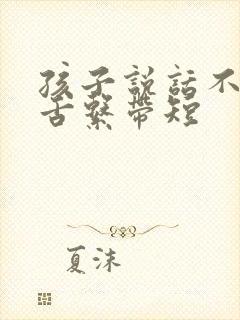 孩子説話不
舌繫帶短
夏沫